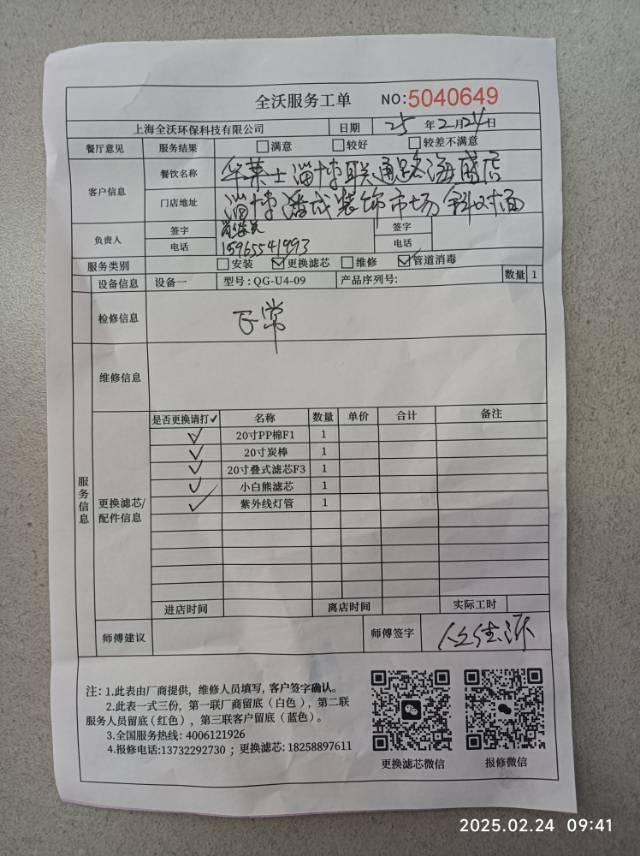 全沃服务工单 NO:5040649
上海全沃环保科技有限公司 日期 25 年 2 月 24 日
餐厅意见 服务结果 满意 较好 较差不满意
客户信息 餐饮名称 华莱士淄博联通路海盛店
门店地址 淄博潘成装饰市场斜对面
负责人 签字 签字
电话 15965541493 电话
服务类别 安装 更换滤芯 维修 管道消毒
设备信息 设备一 型号:QG-U4-09 产品序列号: 数量 1
检修信息 正常
维修信息
服务信息
更换滤芯/配件信息
是否更换请打✓ 名称 数量 单价 合计 备注
✓ 20寸PP棉F1 1
✓ 20寸炭棒 1
✓ 20寸叠式滤芯F3 1
✓ 小白熊滤芯 1
✓ 紫外线灯管 1
进店时间 离店时间 实际工时
师傅建议 师傅签字
注: 1.此表由厂商提供，维修人员填写，客户签字确认。
2.此表一式三份，第一联厂商留底（白色），第二联
服务人员留底（红色），第三联客户留底（蓝色）。
3.全国服务热线: 4006121926
4.报修电话:13732292730；更换滤芯: 18258897611
更换滤芯微信 报修微信
2025.02.24 09:41